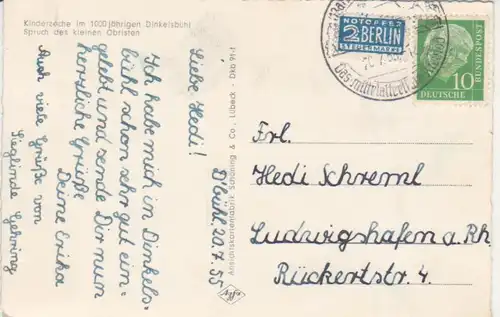 Kinderzeche im 1000 jährigen Dinkelsbühl
Spruch des kleinen Obristen
D'bühl, 20.7.55
Liebe Hedi!
Ich habe mich in Dinkels-
bühl schon sehr gut ein-
gelebt und sende Dir nun
herzliche Grüße
Deine Erika
Auch viele Grüße von
Sieglinde Gehring
Ansichtskartenfabrik Schöning & Co., Lübeck - Dkb 91-f
NOTOPFER
2 BERLIN
STEUERMARKE
10
DEUTSCHE
Das mittelalterl.
Frl.
Hedi Schreml
Ludwigshafen a. Rh
Rückertstr. 4.